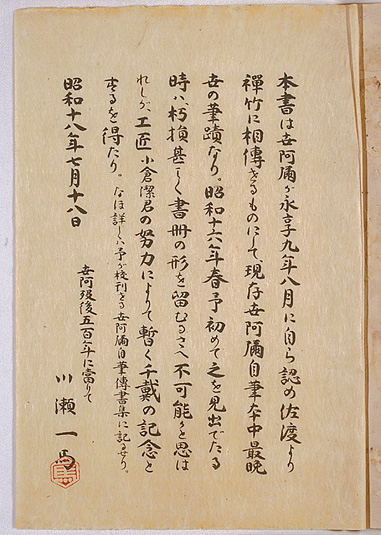 本書は世阿彌が永享九年八月に自ら認め佐渡より
禪竹に相傳せるものにして、現存世阿彌自筆本中最晩
年の筆蹟なり。昭和十六年春予初めて之を見出でたる
時は、朽損甚しく書冊の形を留むるさへ不可能かと思は
れしが、工匠小倉潔君の努力によりて暫く千載の記念と
するを得たり。なほ詳しくは予が校刊せる世阿彌自筆傳書集に記るせり。
昭和十八年七月十八日
世阿歿後五百年に當りて
川瀬一馬
馬